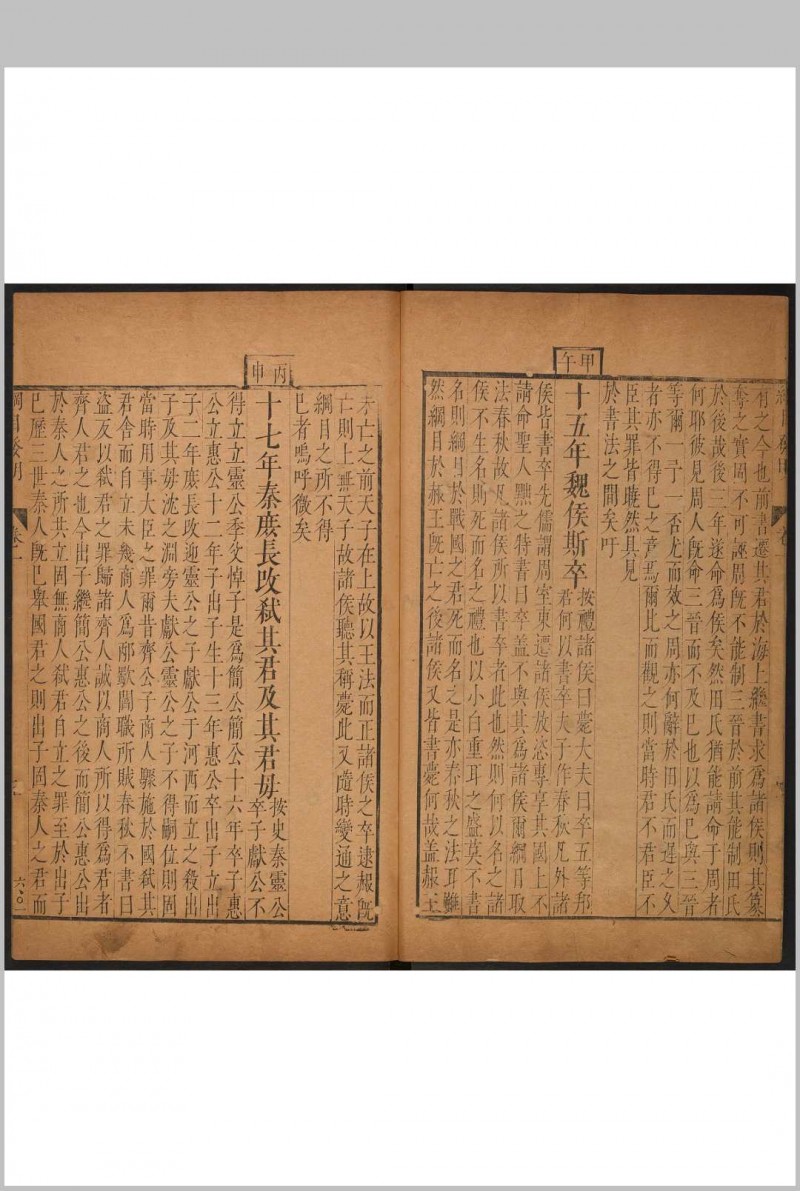 有之今也前書遷其君於海上繼書求爲諸侯則其篡
奪之實周不可誣周既不能制三晉於前其能制田氏
於後哉後三年遂命爲侯矣然田氏猶能請命于周者
何耶彼見周人既命三晉而不及巳也以爲巳與三晉
等爾一予一否尤而效之周亦何辭於田氏而遲之久
者亦不得巳之意焉爾比而觀之則當時君不君臣不
臣其罪皆曉然具見
於書法之間矣吁
甲午
十五年魏侯斯卒按禮諸侯曰薨大夫曰卒五等邦
君何以書卒夫子作春秋凡外諸
侯皆書卒先儒謂周室東遷諸侯放恣專享其國上不
請命聖人黜之特書曰卒蓋不與其爲諸侯爾綱目取
法春秋故凡諸侯所以書卒者此也然則何以名之諸
侯不生名則死而名之禮也以小白重耳之盛莫不書
名則綱目於戰國之君死而名之是亦春秋之法耳雖
然綱目於赧王既亡之後諸侯又皆書薨何哉蓋赧王
未亡之前天子在上故以王法而正諸侯之卒逮赧既
亡則上無天子故諸侯聽其稱薨此又隨時變通之意
綱目之所不得
巳者嗚呼微矣
丙申
十七年秦庶長改弑其君及其君母按史秦靈公
卒子獻公不
得立立靈公季父悼子是爲簡公簡公十六年卒子惠
公立惠公十二年子出子生十三年惠公卒出子立出
子二年庶長改迎靈公之子獻公于河西而立之殺出
子及其母沈之淵旁夫獻公靈公之子不得嗣位則固
當時用事大臣之罪爾昔齊公子商人驟施於國弑其
君舍而自立未幾商人爲邴歜閻職所賊春秋不書曰
盜反以弑君之罪歸諸齊人誠以商人所以得爲君者
齊人君之也今出子繼簡公惠公之後而簡公惠公出
於秦人之所共立固無商人弑君自立之罪至於出子
巳歷三世秦人既巳舉國君之則出子固秦人之君而
綱目發明
卷二
六〇一